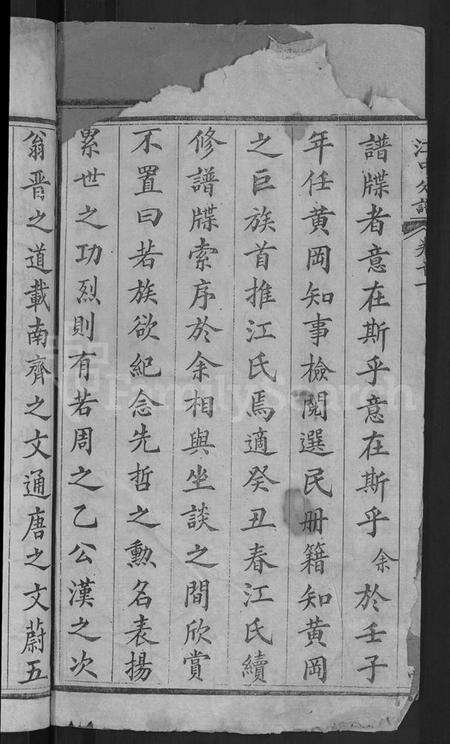 譜牒者意在斯乎意在斯乎余於壬子
年任黃岡知事檢閱選民冊籍知黃岡
之巨族首推江氏焉適癸丑春江氏續
修譜牒索序於余相與坐談之間欣賞
不置曰若族欲紀念先哲之勳名表揚
累世之功烈則有若周之乙公漢之次
翁晋之道載南齊之文通唐之文蔚五
FamilySearch